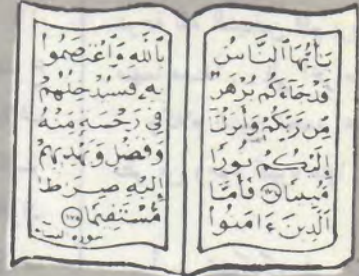 يَٰٓأَيُّهَا ٱلنَّاسُ
قَدْ جَآءَكُم بُرْهَٰنٌ
مِّن رَّبِّكُمْ وَأَنزَلْنَآ
إِلَيْكُمْ نُورًا
مُّبِينًا ﴿١٧٤﴾ فَأَمَّا
ٱلَّذِينَ ءَامَنُوا۟
بِٱللَّهِ وَٱعْتَصَمُوا۟
بِهِۦ فَسَيُدْخِلُهُمْ
فِى رَحْمَةٍ مِّنْهُ
وَفَضْلٍ وَيَهْدِيهِمْ
إِلَيْهِ صِرَٰطًا
مُّسْتَقِيمًا ﴿١٧٥﴾
سورة النساء